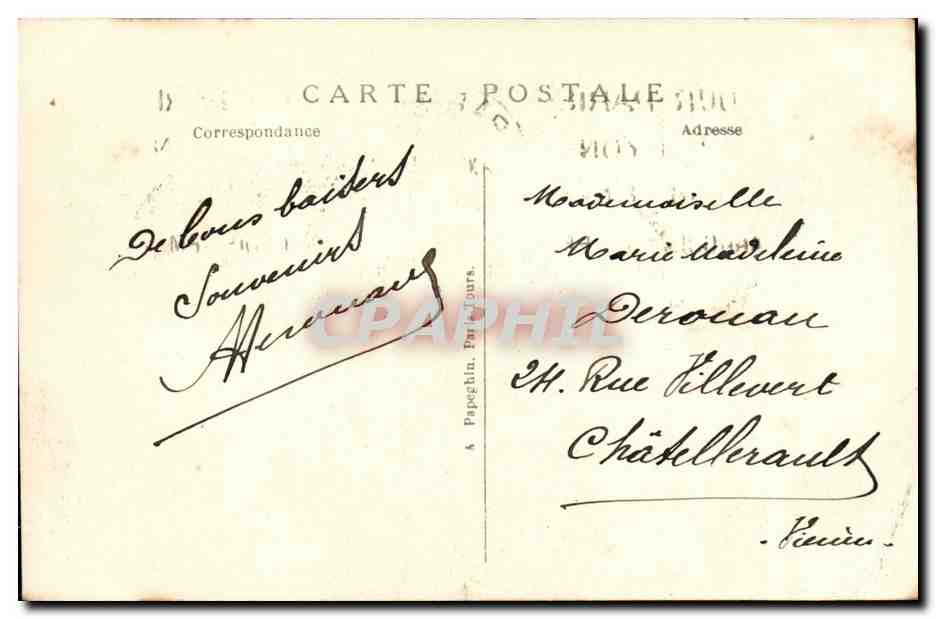 CARTE POSTALE
Correspondance
Adresse
De bons baisers
Souvenirs
A. Papeghin. Paris-Tours.
Mademoiselle
Marie Madeleine
Derouau
24. Rue Villevert
Châtellerault
- Vienne -
CPAPHIL